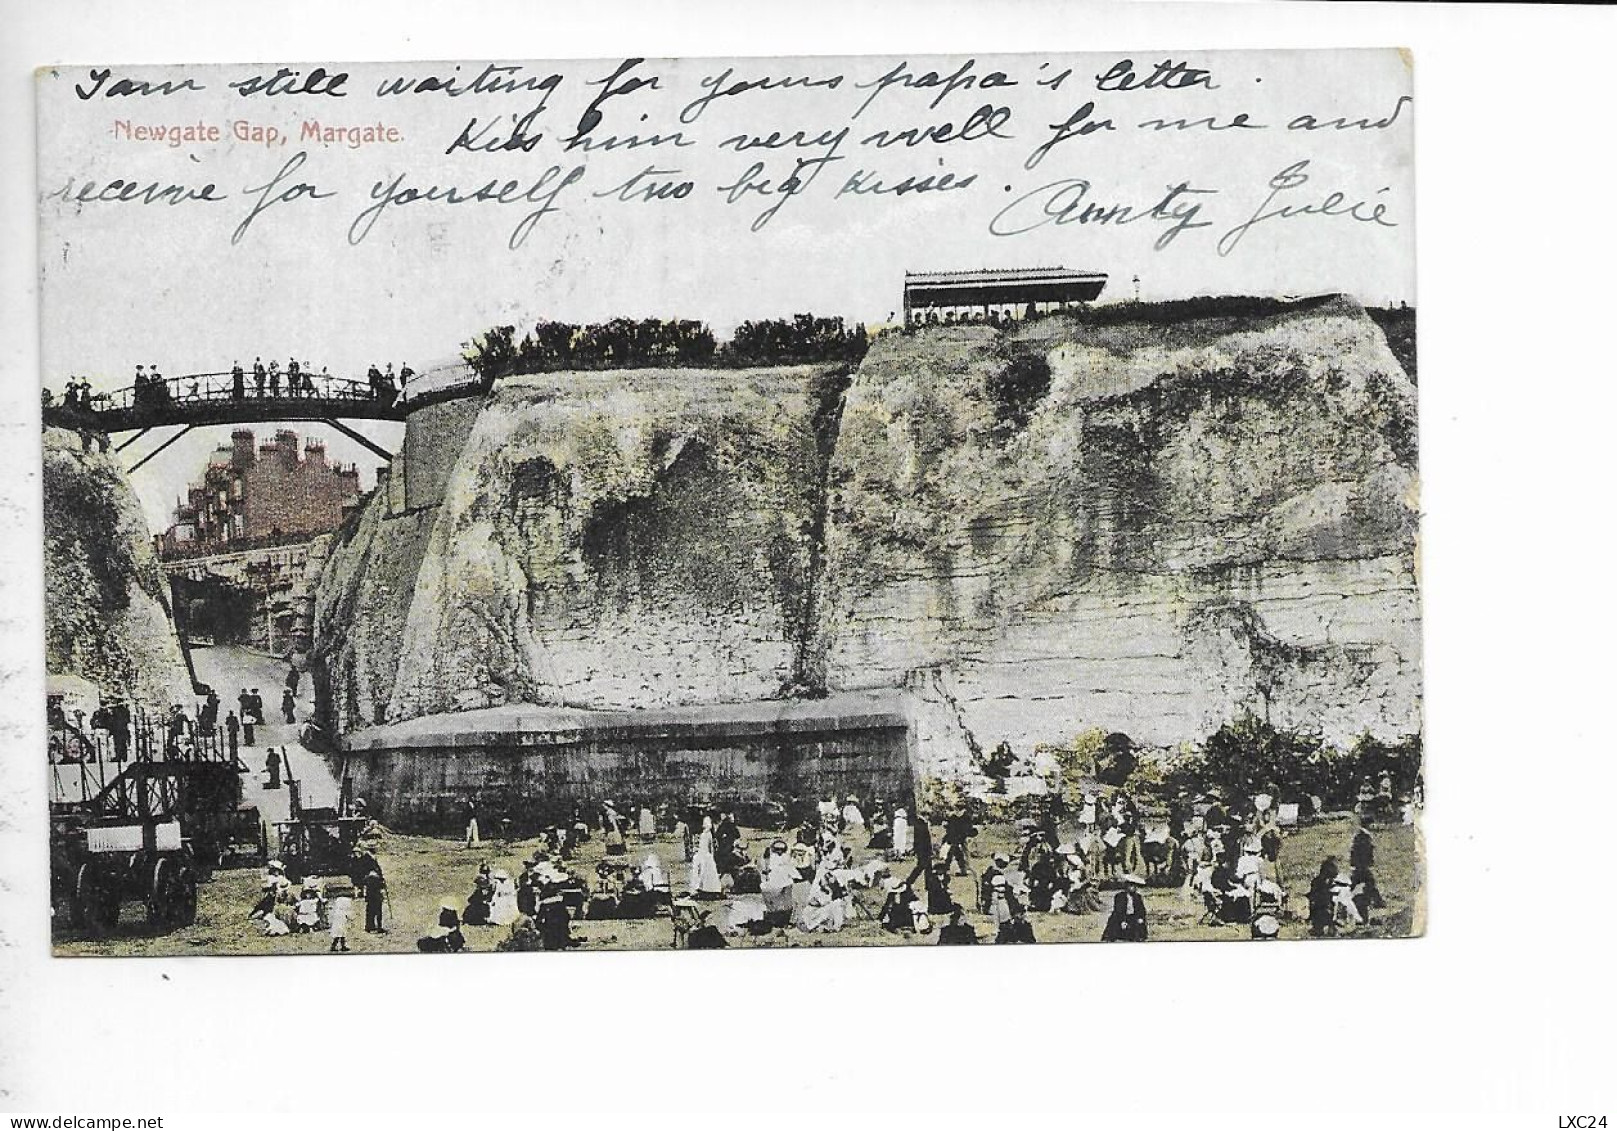 I am still waiting for yours papa's letter.
Newgate Gap, Margate.
Kiss him very well for me and
receive for yourself two big kisses.
Aunty Julie
LXC24